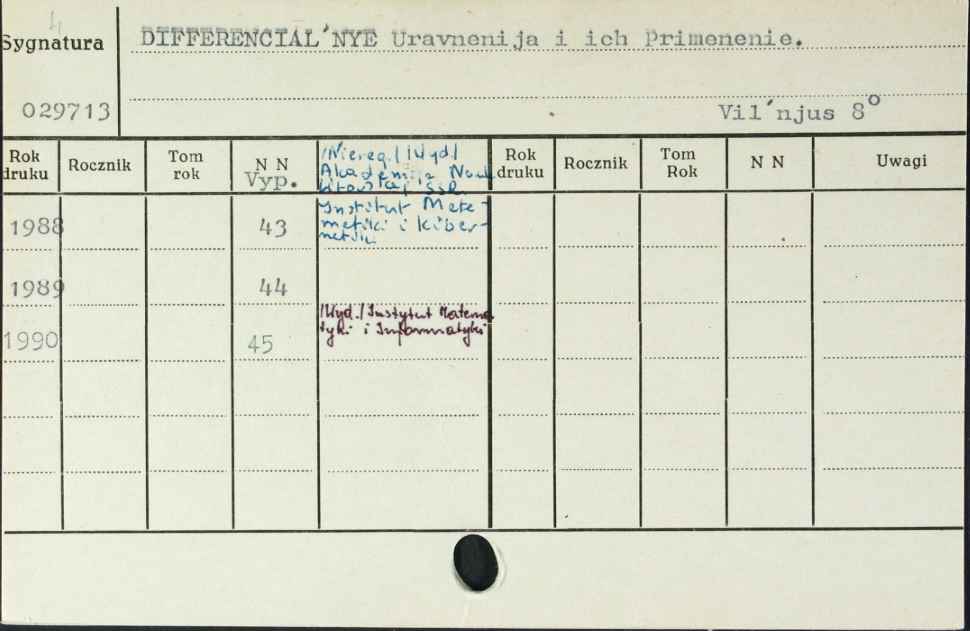 4
Sygnatura
DIFFERENCIAL'NYE Uravnenija i ich Primenenie.
029713
Vil'njus 8°
Rok druku
Rocznik
Tom rok
N N
Vyp.
/Niereg./ /Wyd/
Akademija Nauk
Litovskoj SSR.
Institut Mate-
matiki i kiber-
netiki
Rok druku
Rocznik
Tom Rok
N N
Uwagi
1988 43
1989 44
/Wyd./ Instytut Matema
tyki i Informatyki
1990 45